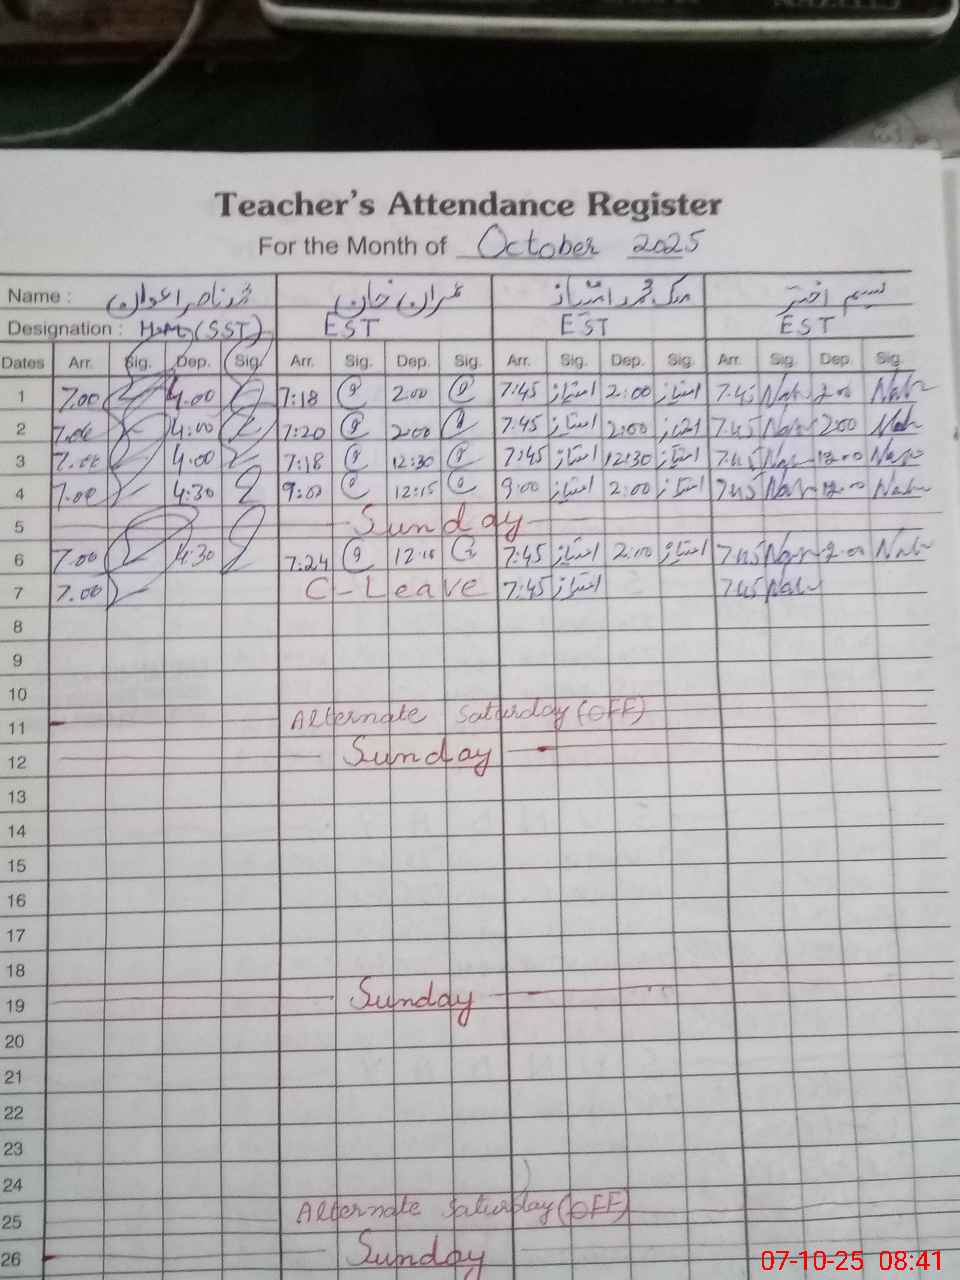 Teacher's Attendance Register
For the Month of October 2025
Name : عمران خان ملک محمد امتیاز نسیم اختر
Designation : (SST) EST EST EST
Dates Arr. Sig. Dep. Sig. Arr. Sig. Dep. Sig. Arr. Sig. Dep. Sig. Arr. Sig. Dep. Sig.
1 7.00 4.00 7:18 2.00 7:45 امتیاز 2:00 امتیاز 7.45 2.00
2 7.00 4:00 7:20 2:00 7:45 امتیاز 2:00 امتیاز 7.45 2.00
3 7.00 4.00 7:18 12:30 7:45 امتیاز 12:30 امتیاز 7.45 12.00
4 7.00 4:30 9:00 12:15 9:00 امتیاز 2:00 امتیاز 7.45 12.00
5 Sunday
6 7.00 4:30 7:24 7:45 امتیاز 2:00 امتیاز 7.45 2.00
7 7.00 C-Leave 7:45 امتیاز 7.45
8
9
10
11 Alternate Saturday (OFF)
12 Sunday
13
14
15
16
17
18
19 Sunday
20
21
22
23
24
25 Alternate Saturday (OFF)
26 Sunday
07-10-25 08:41